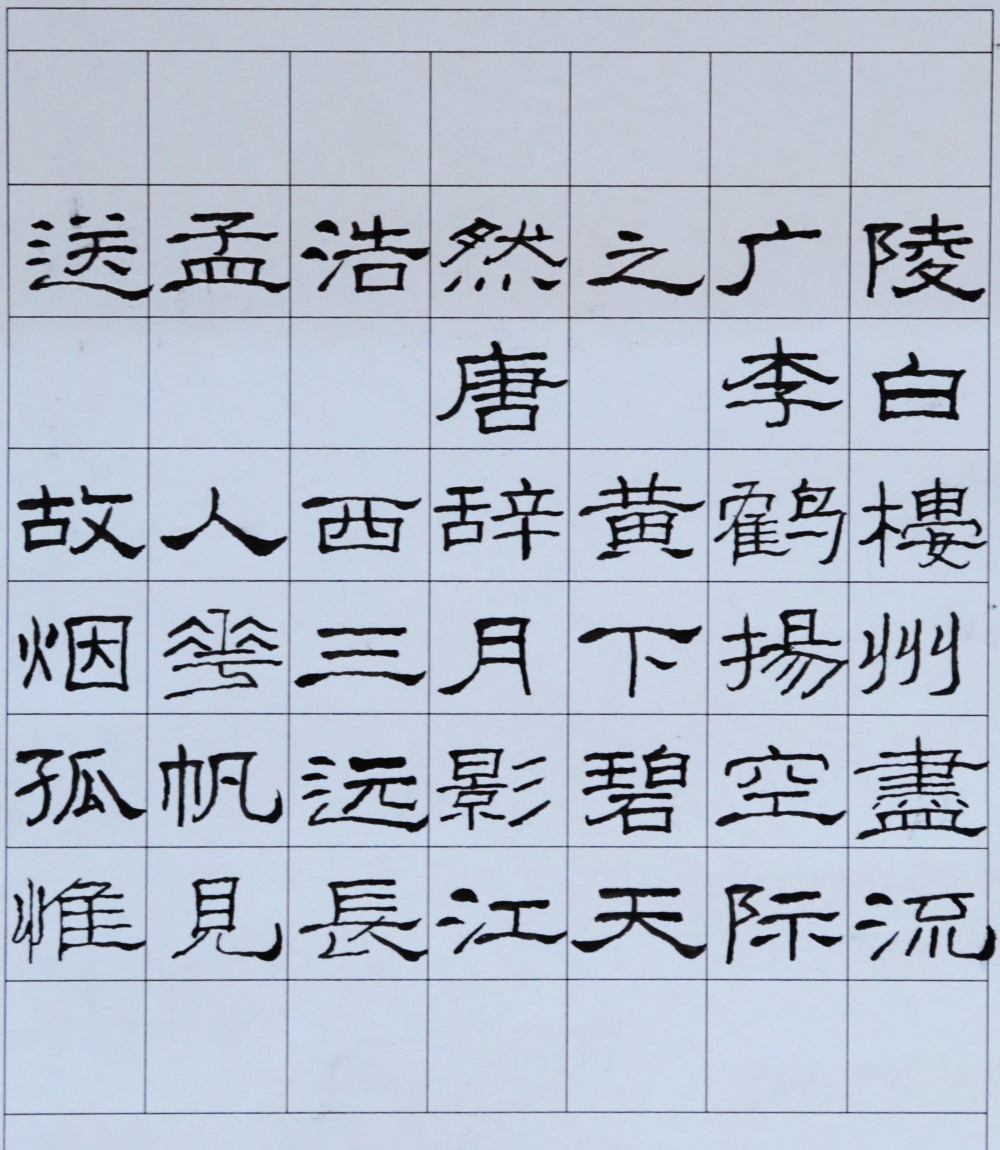 送孟浩然之广陵
唐 李白
故人西辞黄鹤樓
烟華三月下揚州
孤帆远影碧空盡
惟見長江天际流